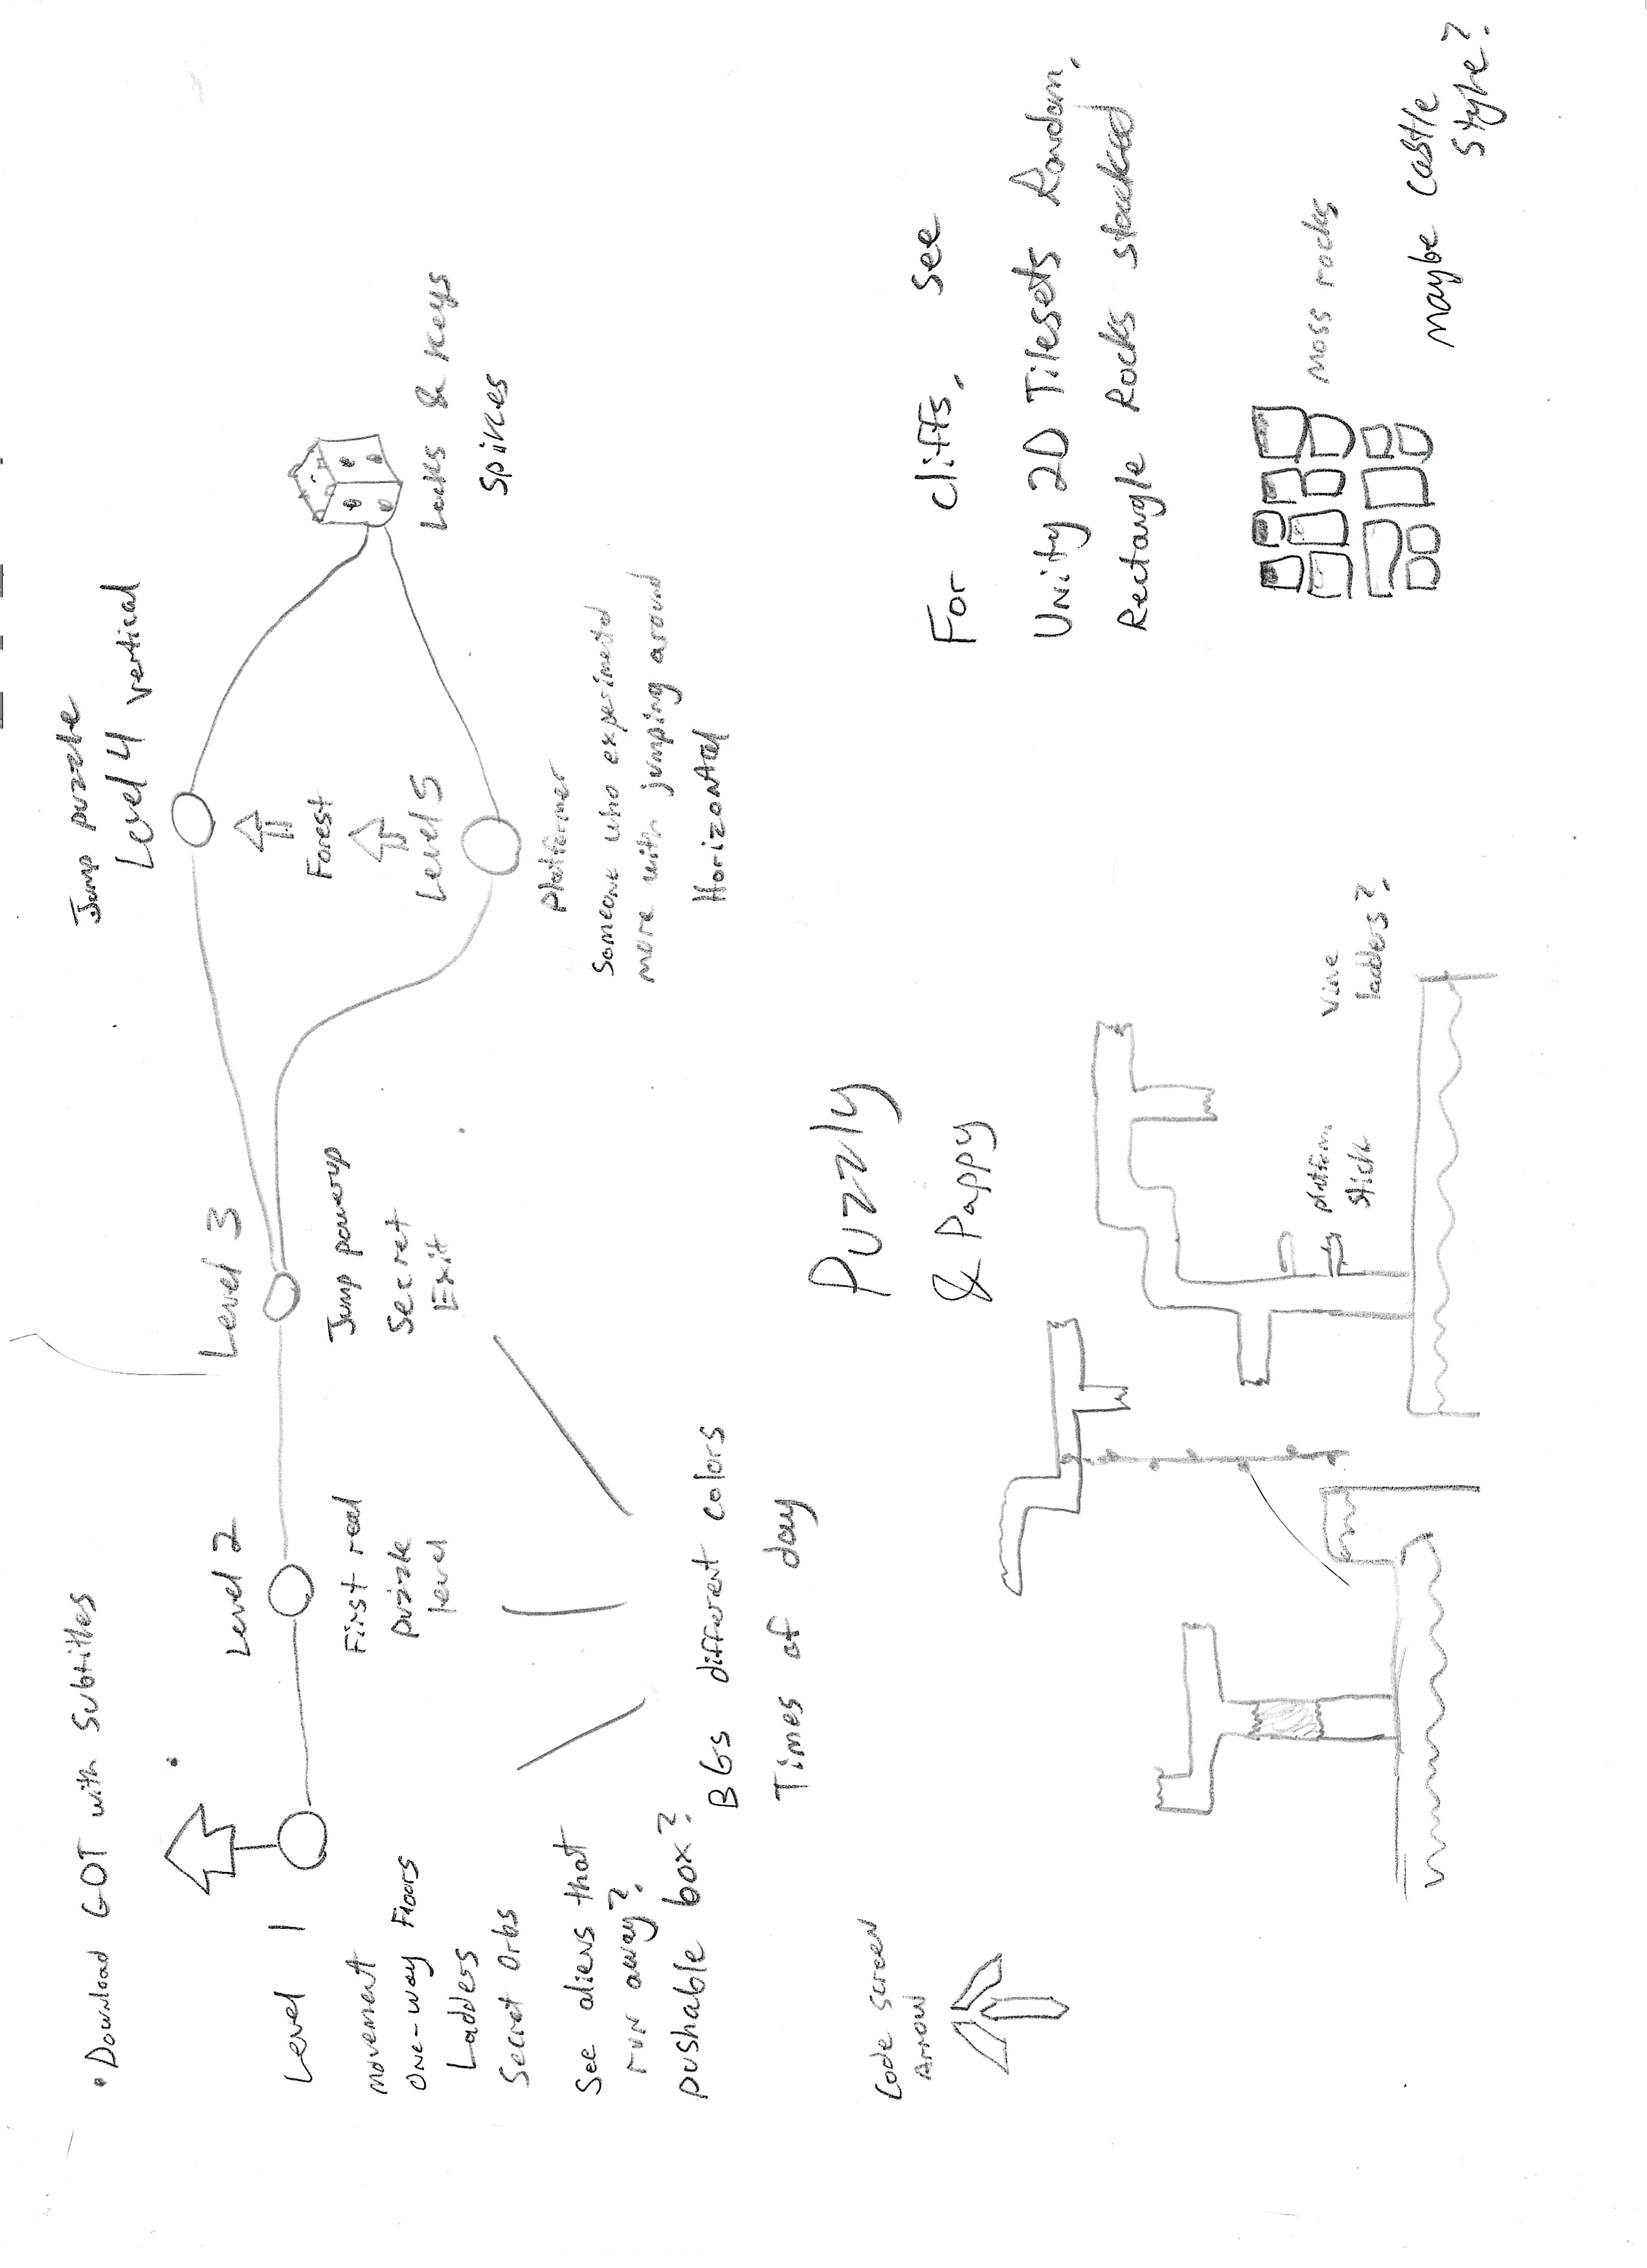 • Download GOT with Subtitles
Level 1
movement
one-way Floors
Ladders
Secret Orbs
See aliens that
run away?
pushable box?
Level 2
First real
puzzle
level
Level 3
Jump powerup
Secret
Exit
BGs different colors
Times of day
Jump puzzle
Level 4 vertical
Forest
Level 5
platformer
Someone who experimented
more with jumping around
Horizontal
Locks & Keys
Spikes
Code screen
Arrow
Puzzly
& Pappy
platform
stick
Vine
ladders?
For cliffs, see
Unity 2D Tilesets Random,
Rectangle Rocks stacked
moss rocks
maybe castle
style?